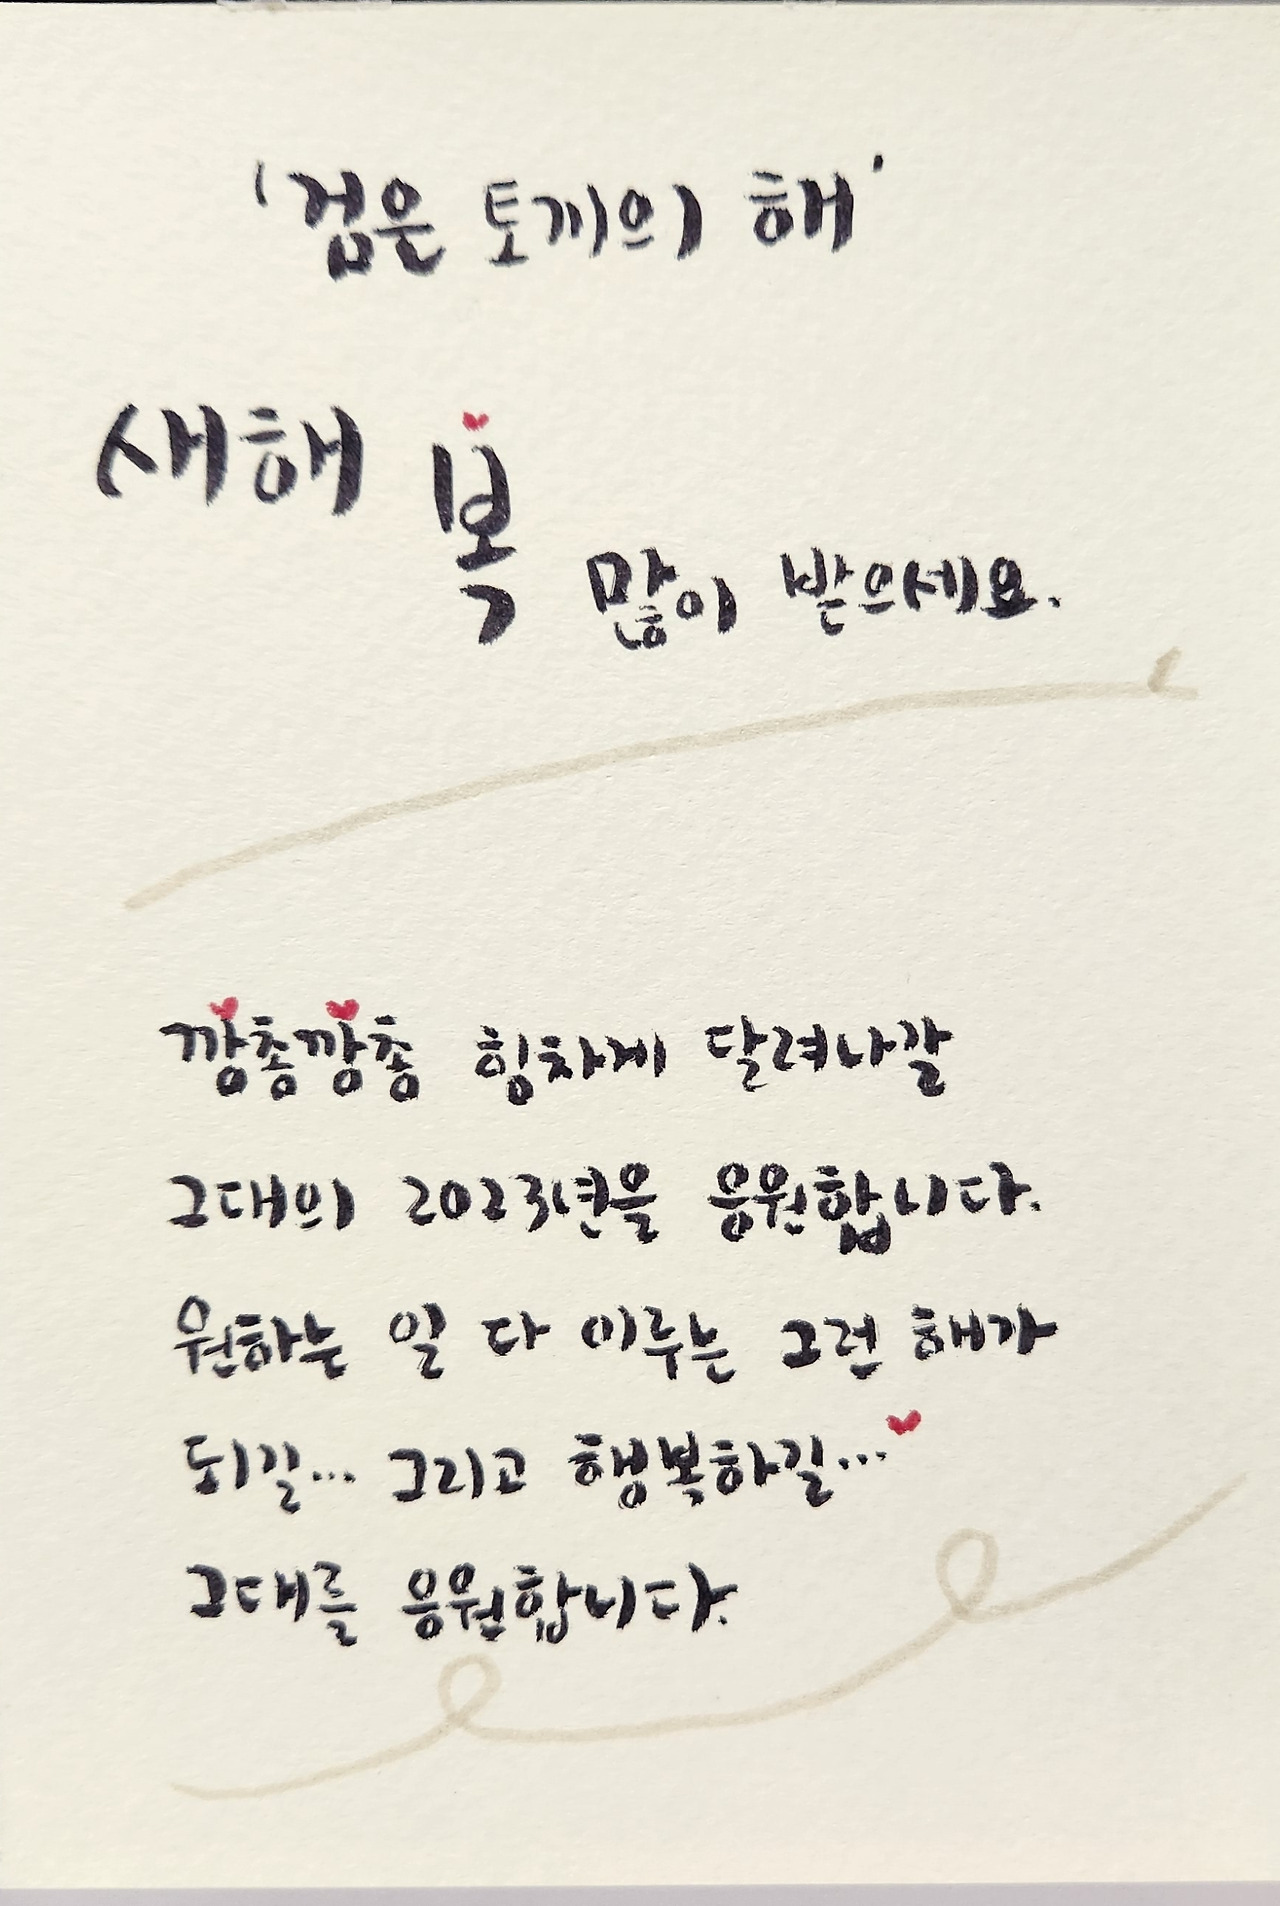 '검은 토끼의 해'
새해 복 많이 받으세요.
깡총깡총 힘차게 달려나갈
그대의 2023년을 응원합니다.
원하는 일 다 이루는 그런 해가
되길... 그리고 행복하길...
그대를 응원합니다.